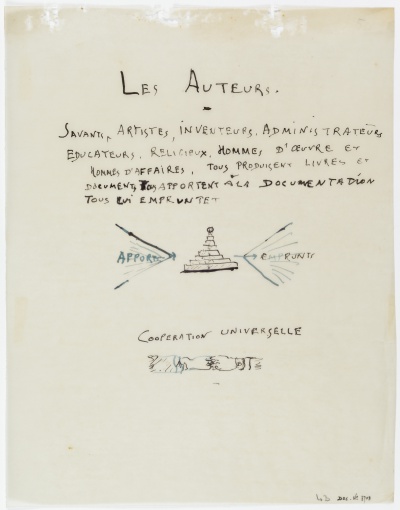 LES AUTEURS.
SAVANTS, ARTISTES, INVENTEURS, ADMINISTRATEURS
EDUCATEURS, RELIGIEUX, HOMMES D'ŒUVRE ET
HOMMES D'AFFAIRES, TOUS PRODUISENT LIVRES ET
DOCUMENTS TOUS APPORTENT À LA DOCUMENTATION
TOUS LUI EMPRUNTET
APPORTS EMPRUNTS
COOPERATION UNIVERSELLE